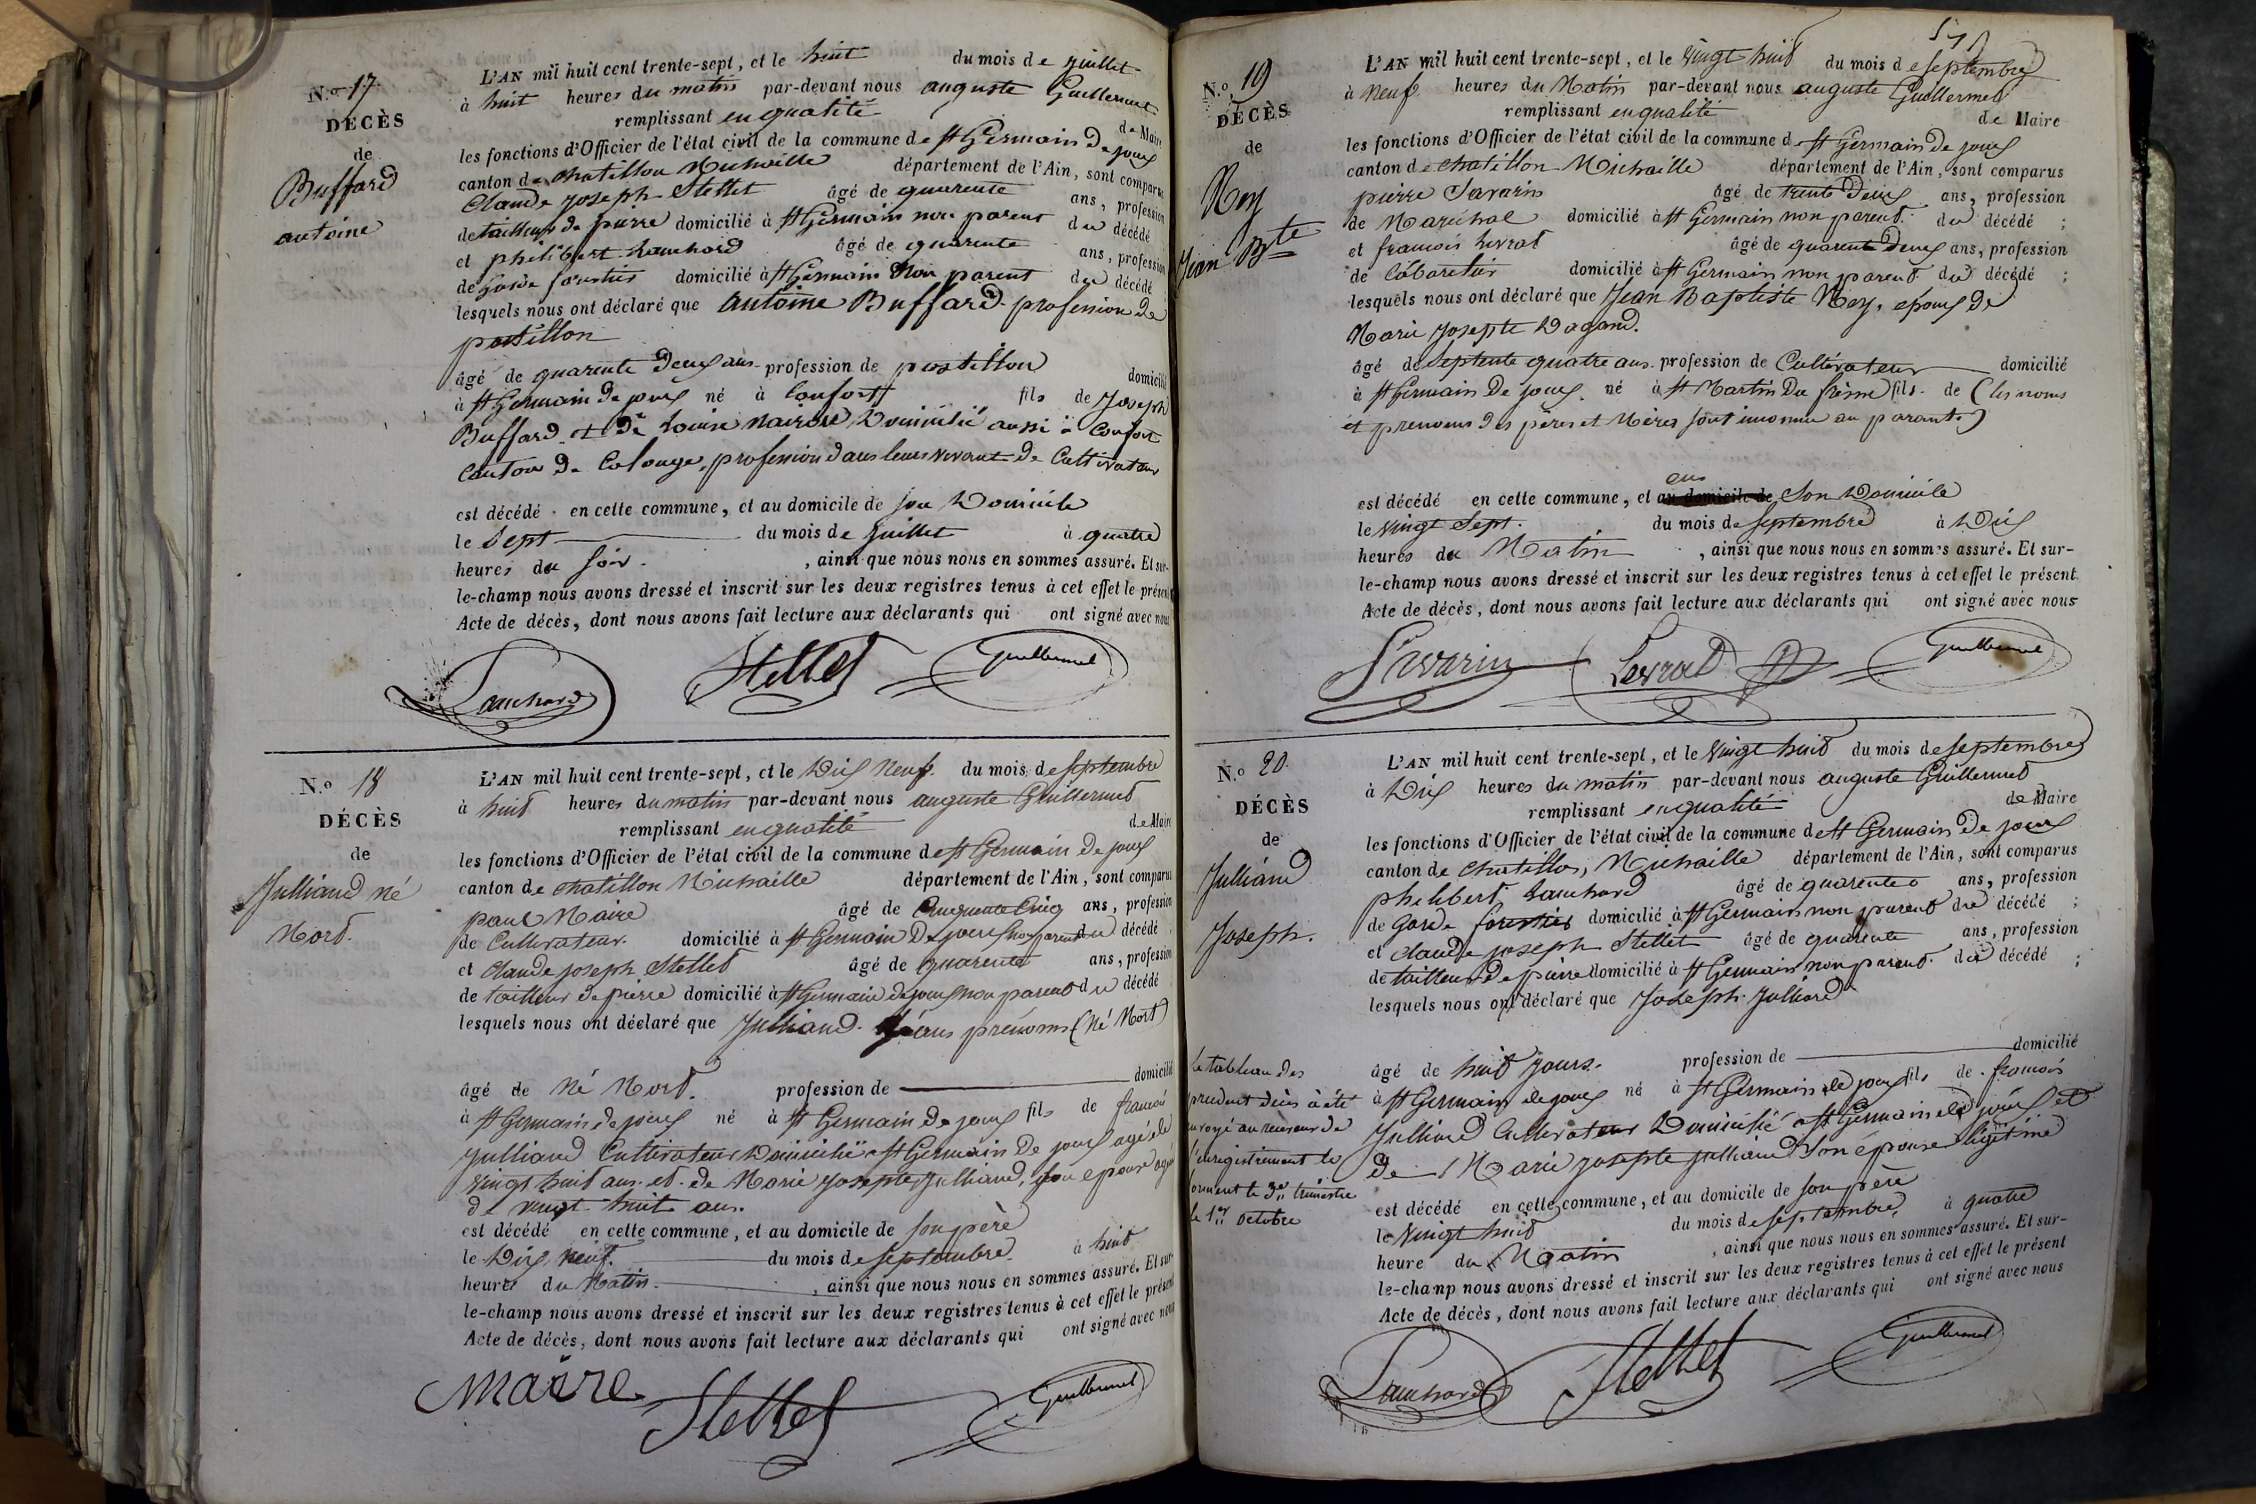 N.º 17.
DÉCÈS
de
Buffard
antoine
L'AN mil huit cent trente-sept, et le huit du mois de juillet
à huit heures du matin par-devant nous auguste Guillermet
remplissant en qualité de Maire
les fonctions d'Officier de l'état civil de la commune de St Germain de joux
canton de chatillon Michaille département de l'Ain, sont comparus
Claude joseph Stellet âgé de quarente ans, profession
de tailleur de pierre domicilié à St Germain non parent du décédé
et philibert Lanchard âgé de quarente ans, profession
de garde forestier domicilié à St Germain Non parent du décédé
lesquels nous ont déclaré que antoine Buffard profession de
postillon
âgé de quarente deux ans profession de postillon domicilié
à St Germain de joux né à Confort fils de Joseph
Buffard et de Louise Domicilié aussi à Confort
Canton de Colonge, profession dans leurs vivant de Cultivateur
est décédé en cette commune, et au domicile de son Domicile
le Sept du mois de juillet à quatre
heures du soir , ainsi que nous nous en sommes assuré. Et sur-
le-champ nous avons dressé et inscrit sur les deux registres tenus à cet effet le présent
Acte de décès, dont nous avons fait lecture aux déclarants qui ont signé avec nous
Lanchard Stellet Guillermet
N.º 18
DÉCÈS
de
Julliand né
Mort.
L'AN mil huit cent trente-sept, et le Dix Neuf du mois de septembre
à huit heures du matin par-devant nous auguste Guillermet
remplissant en qualité de Maire
les fonctions d'Officier de l'état civil de la commune de St Germain de joux
canton de chatillon Michaille département de l'Ain, sont comparus
paul Maire âgé de Cinquante Cinq ans, profession
de Cultivateur domicilié à St Germain De joux non parent du décédé
et claude joseph Stellet âgé de quarente ans, profession
de tailleur de pierre domicilié à St Germain de joux non parent du décédé
lesquels nous ont déclaré que Julliand sans prénoms (Né Mort)
âgé de Né Mort. profession de domicilié
à St Germain de joux né à St Germain de joux fils de francois
julliand Cultivateur Domicilié à St Germain De joux agé de
vingt huit ans et de Marie josepte julliand, son epouse agé
de vingt huit ans.
est décédé en cette commune, et au domicile de son père
le Dix neuf. du mois de septembre à huit
heures du Matin , ainsi que nous nous en sommes assuré. Et sur-
le-champ nous avons dressé et inscrit sur les deux registres tenus à cet effet le présent
Acte de décès, dont nous avons fait lecture aux déclarants qui ont signé avec nous
Maire Stellet Guillermet
N.º 19
DÉCÈS
de
Rey
Jean Bte
L'AN mil huit cent trente-sept, et le vingt huit du mois de septembre
à Neuf heures du Matin par-devant nous auguste Guillermet
remplissant en qualité de Maire
les fonctions d'Officier de l'état civil de la commune de St Germain de joux
canton de chatillon Michaille département de l'Ain, sont comparus
pierre Savarin âgé de trente Deux ans, profession
de Maréchal domicilié à St Germain non parent du décédé ;
et francois Levrat âgé de quarente Deux ans, profession
de Cabaretier domicilié à St Germain non parent du décédé ;
lesquels nous ont déclaré que Jean Baptiste Rey, epoux de
Marie Josepte Dagand.
âgé de Septente quatre ans profession de Cultivateur domicilié
à St Germain De joux né à St Martin Du frêne fils de (les noms
et prenoms des pères et Mères sont inconnu au parants)
est décédé en cette commune, et en au domicile de Son Domicile
le vingt sept. du mois de septembre à Dix
heures du Matin , ainsi que nous nous en sommes assuré. Et sur-
le-champ nous avons dressé et inscrit sur les deux registres tenus à cet effet le présent
Acte de décès, dont nous avons fait lecture aux déclarants qui ont signé avec nous
Savarin Levrat Guillermet
N.º 20.
DÉCÈS
de
Julliand
Joseph.
L'AN mil huit cent trente-sept, et le vingt huit du mois de septembre
à Dix heures du matin par-devant nous auguste Guillermet
remplissant en qualité de Maire
les fonctions d'Officier de l'état civil de la commune de St Germain de joux
canton de chatillon, Michaille département de l'Ain, sont comparus
philibert Lanchard âgé de quarente ans, profession
de Garde forestier domicilié à St Germain non parent du décédé ;
et claude joseph Stellet âgé de quarente ans, profession
de tailleur de pierre domicilié à St Germain non parent du décédé ;
lesquels nous ont déclaré que Joseph Julliand
âgé de huit jours. profession de domicilié
à St Germain de joux né à St Germain de joux fils de francois
julliand Cultivateur Domicilié à St Germain de joux et
de Marie josepte julliand Son épouse légitime
est décédé en cette commune, et au domicile de son père
le vingt huit du mois de septembre, à quatre
heure du Matin , ainsi que nous nous en sommes assuré. Et sur-
le-champ nous avons dressé et inscrit sur les deux registres tenus à cet effet le présent
Acte de décès, dont nous avons fait lecture aux déclarants qui ont signé avec nous
Lanchard Stellet Guillermet
Le tableau des
décès a été
au receveur de
l'enregistrement le
le 3e trimestre
le 1er octobre